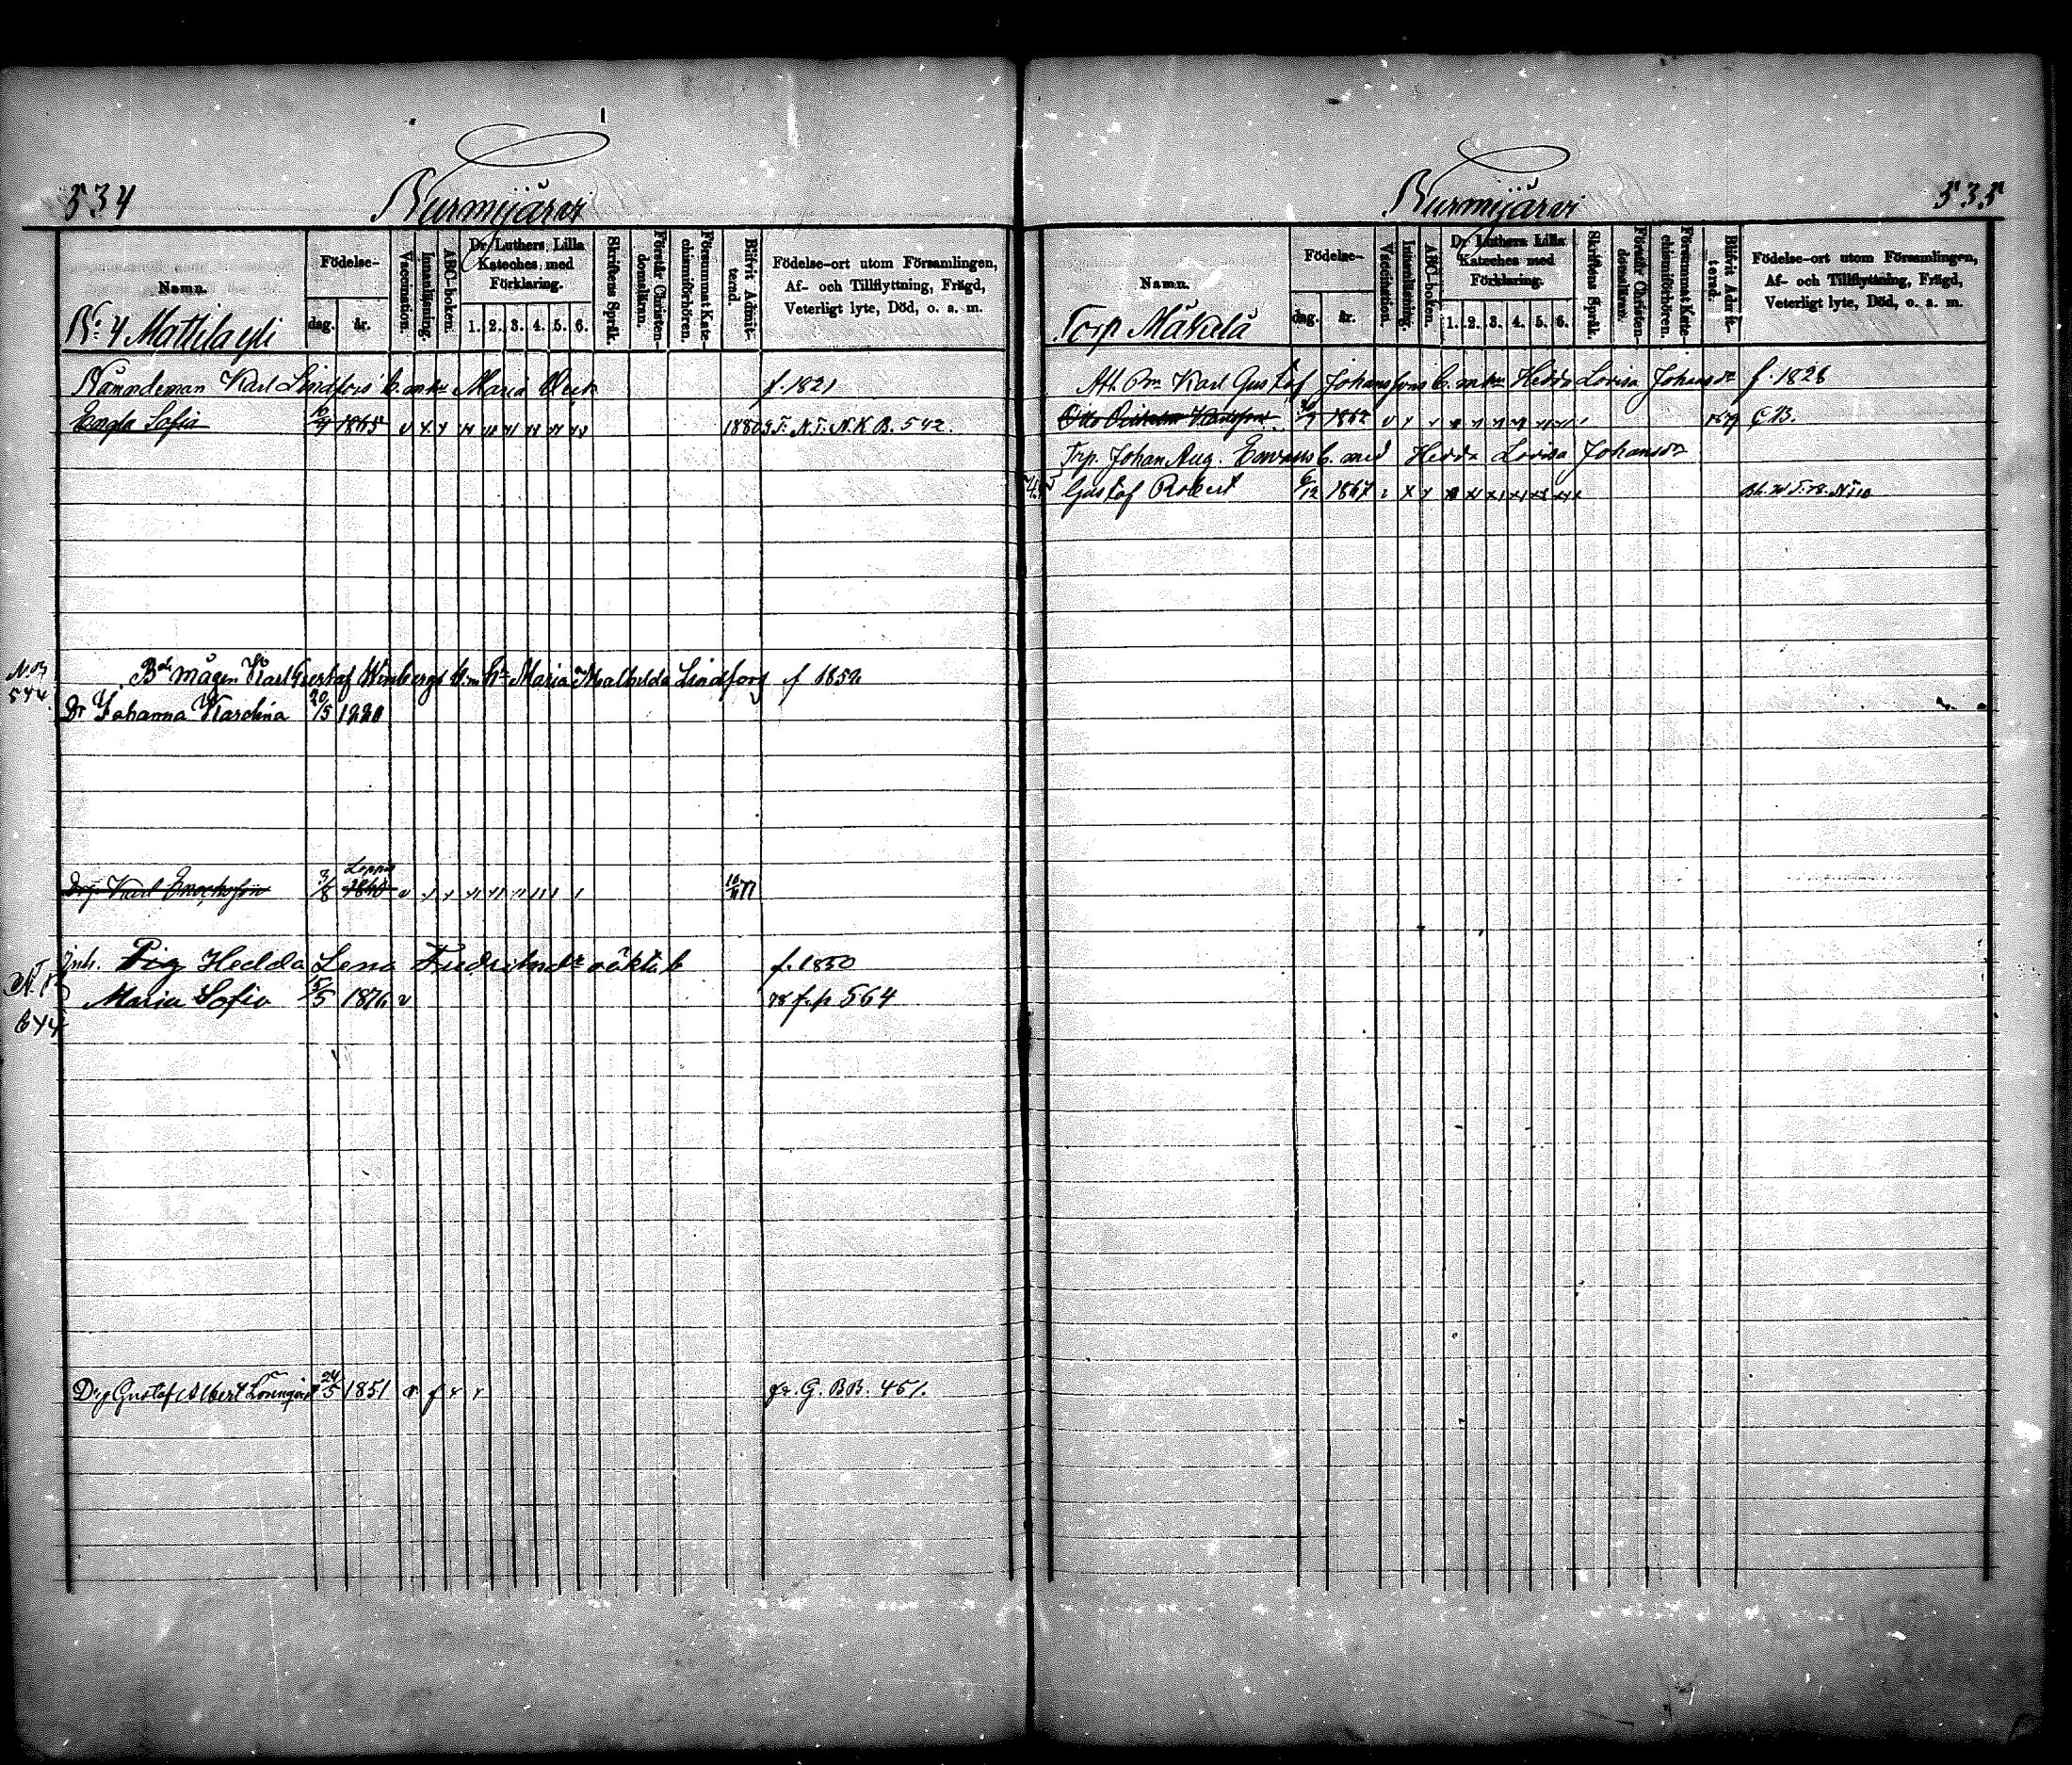 534
Burmijärvi
Namn.
Födelse-
dag. år.
Vaccination.
Innanläsning.
ABC-boken.
Dr Luthers Lilla
Kateches med
Förklaring.
1. 2. 3. 4. 5. 6.
Skriftens Språk.
Förstår Christen-
domsläran.
Försummat Kate-
chismiförhören.
Blifvit Admit-
terad.
Födelse-ort utom Församlingen,
Af- och Tillflyttning, Frägd,
Veterligt lyte, Död, o. a. m.
No 4 Mattilaeli
Nämndeman Karl Lindfors b. m. hu Maria f. 1821
Engla Sofia 1865 1880 542.
No 13
574
Bde mågen Karl Gustaf Winbergs b. m. h. Maria Mathilda Lindfors f 1852
Dr Johanna Karolina 20/5 1880
Loppis
Drg Karl Enochsson 3/8 1840 77
inh. Pig Hedda Lena Fredriksdr oäkta b f. 1850
Maria Sofia 5/5 1876 v 78 f. p 564
644
Drg Gustaf Albert Lönnqvist 24/5 1851 fr. G. BB. 451.
535
Burmijärvi
Namn.
Födelse-
dag. år.
Vaccination.
Innanläsning.
ABC-boken.
Dr Luthers Lilla
Kateches med
Förklaring.
1. 2. 3. 4. 5. 6.
Skriftens Språk.
Förstår Christen-
domsläran.
Försummat Kate-
chismiförhören.
Blifvit Admit-
terad.
Födelse-ort utom Församlingen,
Af- och Tillflyttning, Frägd,
Veterligt lyte, Död, o. a. m.
Torp Mäkelä
Karl Gustaf Johanssons b. m. hu Hedda Lovisa Johansdr f. 1828
Otto 1862 1879 C.B.
Trp. Johan Aug. b. med Hedda Lovisa Johansdr
Gustaf Robert 6/12 1867